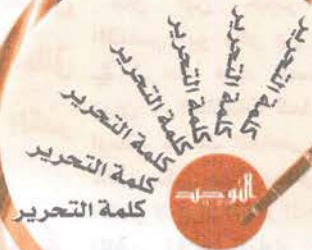 كلمة التحرير
كلمة التحرير
كلمة التحرير
كلمة التحرير
كلمة التحرير
كلمة التحرير
كلمة التحرير
التوحيد